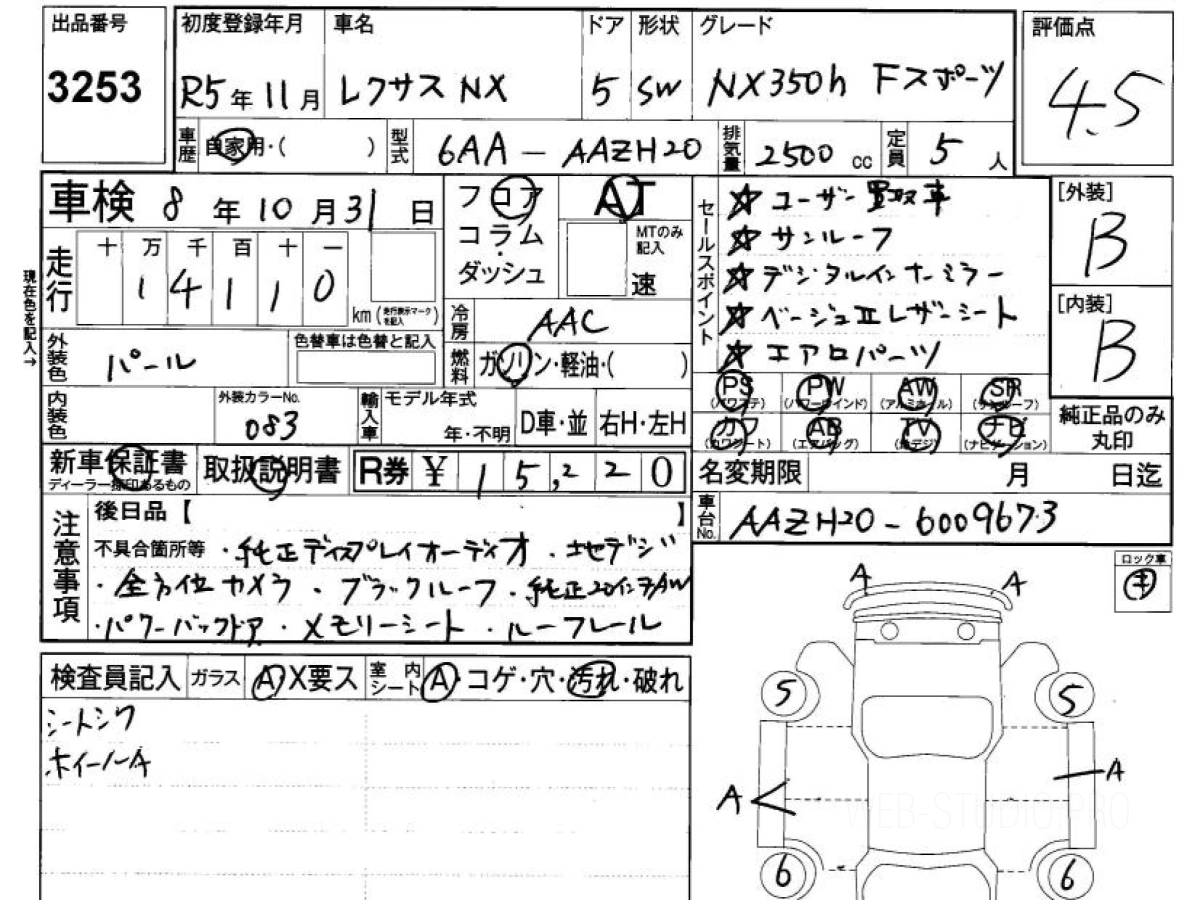 出品番号 初度登録年月 車名 ドア 形状 グレード 評価点
3253 R5年11月 レクサス NX 5 SW NX350h Fスポーツ 4.5
車歴 自家用・( ) 型式 6AA-AAZH20 排気量 2500cc 定員 5人
車検 8年10月31日 フロア AT セールスポイント ☆ユーザー買取車 [外装]
コラム・ MTのみ記入 ☆サンルーフ B
走行 十万千百十一 ダッシュ 速 ☆デジタルインナーミラー
現在色を記入→ 14110 km(走行表示マークを記入) 冷房 AAC ☆ベージュⅡレザーシート [内装]
外装色 パール 色替車は色替と記入 燃料 ガソリン・軽油・( ) ☆エアロパーツ B
PS(パワステ) PW(パワーウインド) AW(アルミホイル) SR(サンルーフ)
内装色 外装カラーNo. 083 輸入車 モデル年式 年・不明 D車・並 右H・左H カワ(カワシート) AB(エアバッグ) TV(地デジ) ナビ(ナビゲーション) 純正品のみ丸印
新車保証書 ディーラー捺印あるもの 取扱説明書 R券 ¥15,220 名変期限 月 日迄
注意事項 後日品【 】 車台No. AAZH20-6009673
不具合箇所等 ・純正ディスプレイオーディオ ・地デジ
・全方位カメラ ・ブラックルーフ ・純正20インチAW ロック車
・パワーバックドア ・メモリーシート ・ルーフレール キ
A A
検査員記入 ガラス A・X要ス 室内シート A・コゲ・穴・汚れ・破れ
シートシワ 5 5
ホイールA
A A
WEB-STUDIO.PRO
6 6